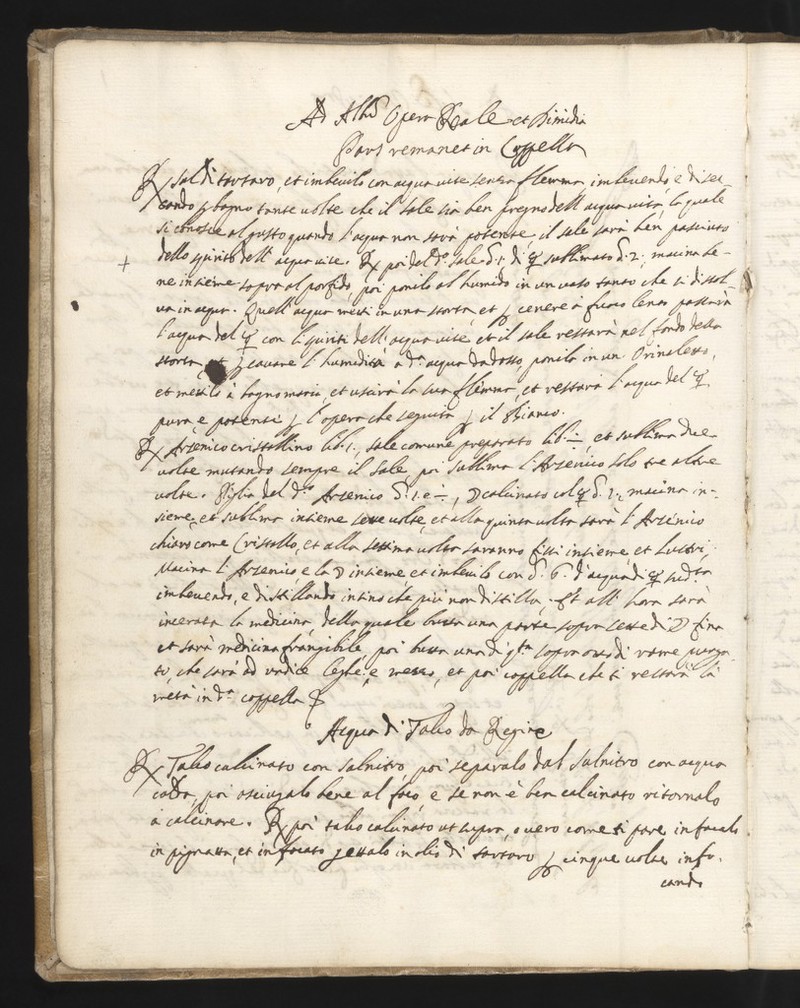 Ad Alb Opera Reale et Dimidia
Pars remanet in Coppella
Sal di tartaro, et imbevilo con acqua vite senza flemma, imbevendo e disec-
cando bagno tante volte che il sale sia ben pregno dell'acqua vita, la quale
si conosce al gusto quando l'acqua non sarà potente il sale sarà ben pasciuto
dello spirito dell'acqua vite. ℞ poi del d.º sale 1. di ☿ sublimato 2: macina be-
ne insieme sopra al porfido, poi ponilo al humido in un vaso tanto che si dissol-
va in acqua. Quell'acqua metti in una storta, et cenere à fuoco lento passarà
l'acqua del ☿ con li spiriti dell'acqua vite et il sale restarà nel fondo della
storta, et cavare l'humidità a d.ª acqua dadosso ponila in un Orinaletto,
et mettilo à bagno maria, et uscirà la sua flemma, et restarà l'acqua del ☿
pura, e potente l'opera che seguita il Bianco.
℞ Arsenico cristallino lib. 1, sale comune preparato lib. et sublima due
volte mutando sempre il sale poi sublima l'Arsenico solo tre altre
volte. Piglia del d.º Arsenico 1. e ☽ calcinato col ☿ macina in-
sieme, et sublima insieme sette volte, et alla quinta volta sarà l'Arsenico
chiaro come Cristallo, et alla settima volta saranno fissi insieme, et lustri.
Macina l'Arsenico, e la ☽ insieme, et imbevilo con 6. d'acqua di ☿ sud.ta
imbevendo, e distillando insino che più non distilla, Et all'hora sarà
incerata la medicina, della quale butta una parte sopra sette di ☽ fina
et sarà medicina frangibile, poi butta una di q.ta sopra otto di rame purga-
to, che sarà ad undice leghe, e mezzo, et poi coppella che ti restarà la
metà in d.ª coppella
Acqua di Talco da Regine
℞ Talco calcinato con salnitro, poi separalo dal salnitro con acqua
calda, poi asciugalo bene al foco e se non è ben calcinato ritornalo
à calcinare. ℞ poi talco calcinato ut supra, overo come ti pare infocalo
in pignatta, et infocato gettalo in olio di tartaro cinque volte info-
cando